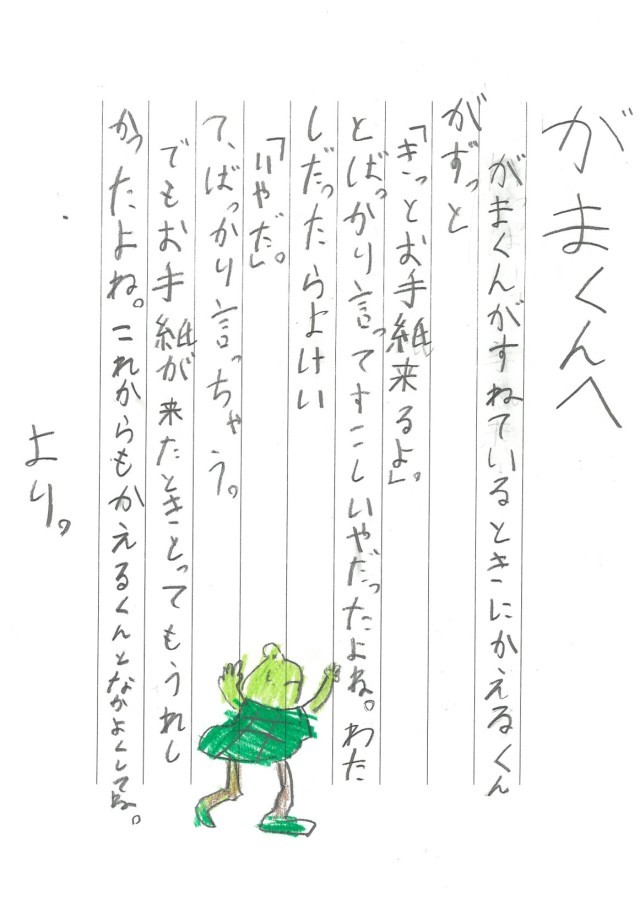 がまくんへ
がまくんがすねているときにかえるくん
がずっと
「きっとお手紙来るよ」。
とばっかり言ってすこしいやだったよね。わた
しだったらよけい
「いやだ」。
て、ばっかり言っちゃう。
でもお手紙が来たときとってもうれし
かったよね。これからもかえるくんとなかよくしてね。
より。